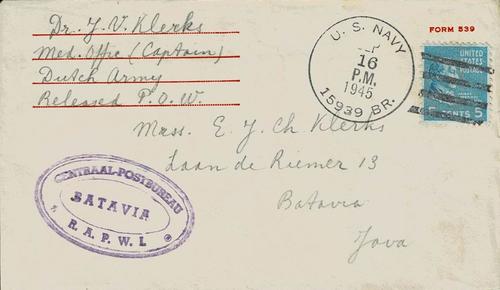 Dr. J. V. Klerks
Med. Offic (Captain)
Dutch Army
Released P.O.W.
U. S. NAVY
SEP
16
P.M.
1945
15939 BR.
FORM 539
UNITED
STATES
POSTAGE
5 CENTS 5
Mrss. E. J. Ch. Klerks
Laan de Riemer 13
Batavia
Java
CENTRAAL-POSTBUREAU
BATAVIA
R. A. P. W. I.